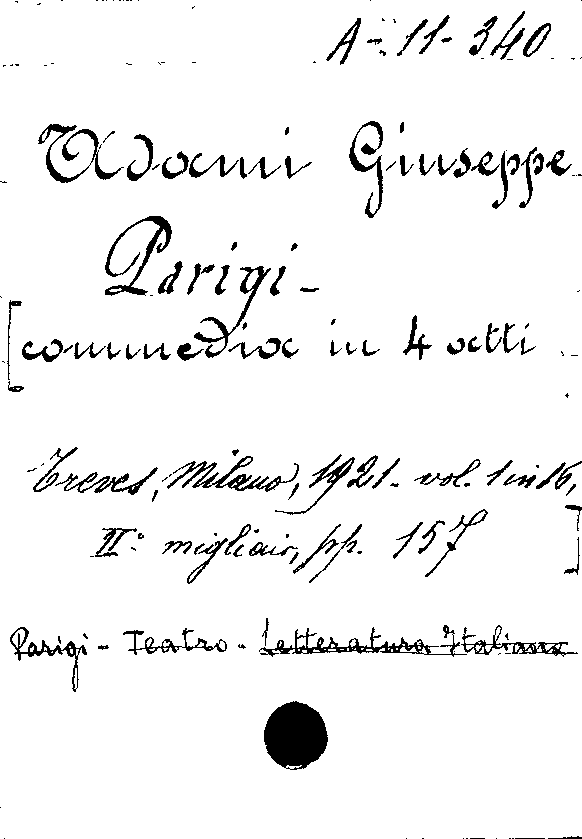 A-11-340
Adami Giuseppe
Parigi-
[commedia in 4 atti
Treves, Milano, 1921- vol. 1 in 16,
II° migliaio, pp. 157]
Parigi - Teatro - Letteratura Italiana